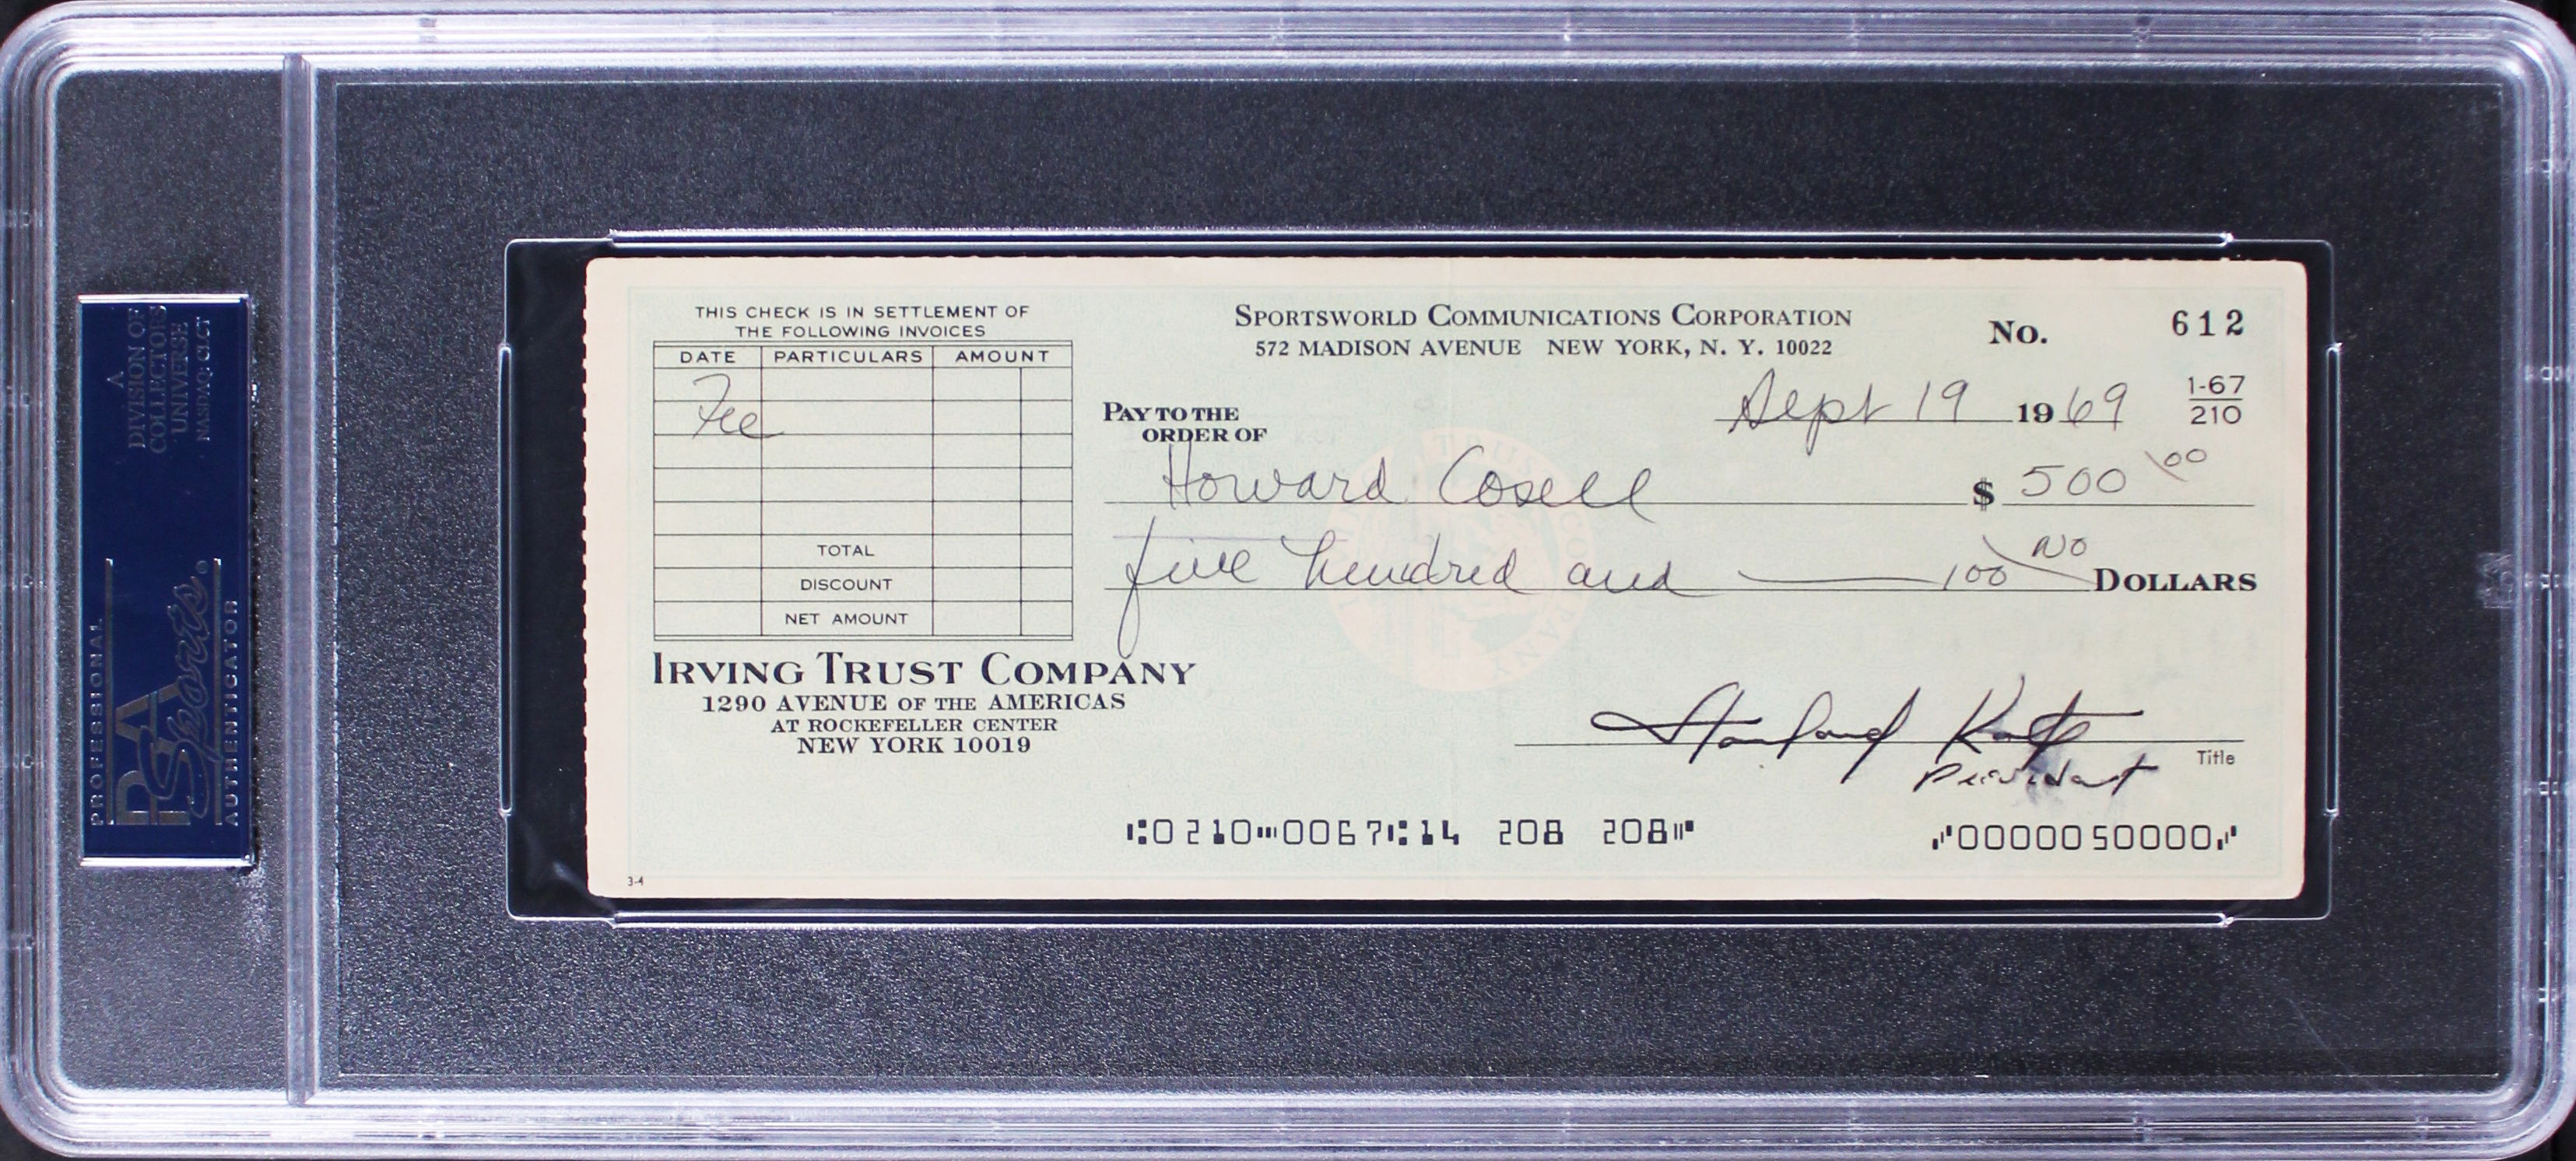 A
DIVISION OF
COLLECTORS
UNIVERSE
NASDAQ: CLCT
PROFESSIONAL
PSA
Sports®
AUTHENTICATOR
THIS CHECK IS IN SETTLEMENT OF
THE FOLLOWING INVOICES
DATE PARTICULARS AMOUNT
Fee
TOTAL
DISCOUNT
NET AMOUNT
IRVING TRUST COMPANY
1290 AVENUE OF THE AMERICAS
AT ROCKEFELLER CENTER
NEW YORK 10019
3-4
SPORTSWORLD COMMUNICATIONS CORPORATION
572 MADISON AVENUE NEW YORK, N. Y. 10022
No. 612
Sept 19 1969
1-67
210
PAY TO THE
ORDER OF
Howard Cosell $ 500 00
five hundred and — No 100 DOLLARS
Stanford
President
Title
⑆0210⑉0067⑆14 208 208⑈
⑇0000050000⑇